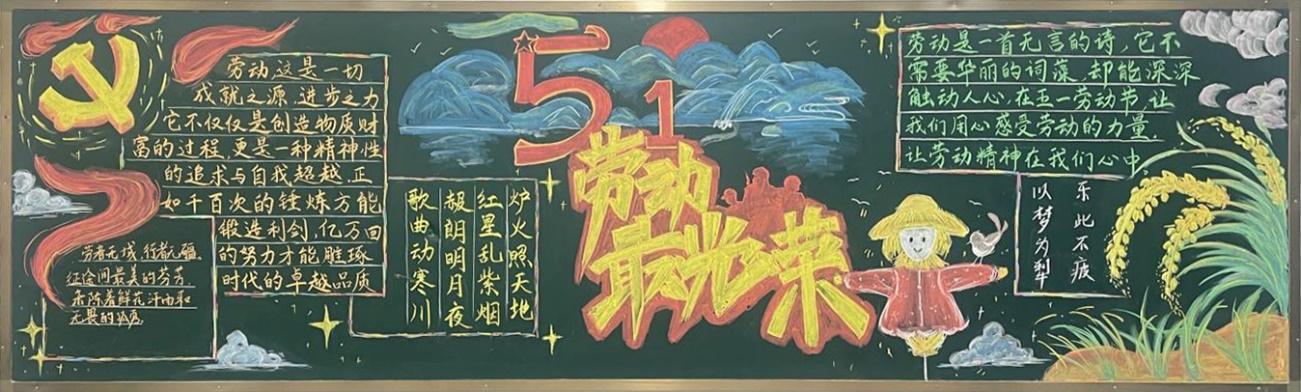 劳动,这是一切
成就之源,进步之力
它不仅仅是创造物质财
富的过程,更是一种精神性
的追求与自我超越,正
如千百次的锤炼方能
锻造利剑,亿万回
的努力才能雕琢
时代的卓越品质
劳者无域,行者无疆。
征途间最美的芬芳
鲜花
无畏的
炉火照天地
红星乱紫烟
赧朗明月夜
歌曲动寒川
51
劳动
最光荣
劳动是一首无言的诗,它不
需要华丽的词藻,却能深深
触动人心,在五一劳动节,让
我们用心感受劳动的力量,
让劳动精神在我们心中.
乐此不疲
以梦为犁